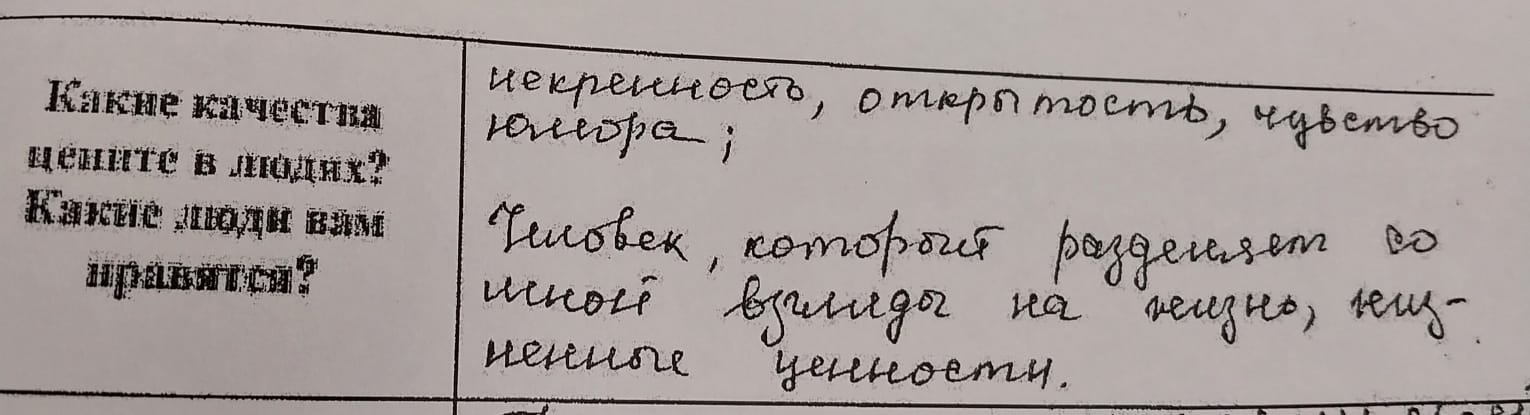 Какие качества
цените в людях?
Какие люди вам
нравятся?
искренность, открытость, чувство
юмора;
Человек, который разделяет со
мной взгляды на жизнь, жиз-
ненные ценности.